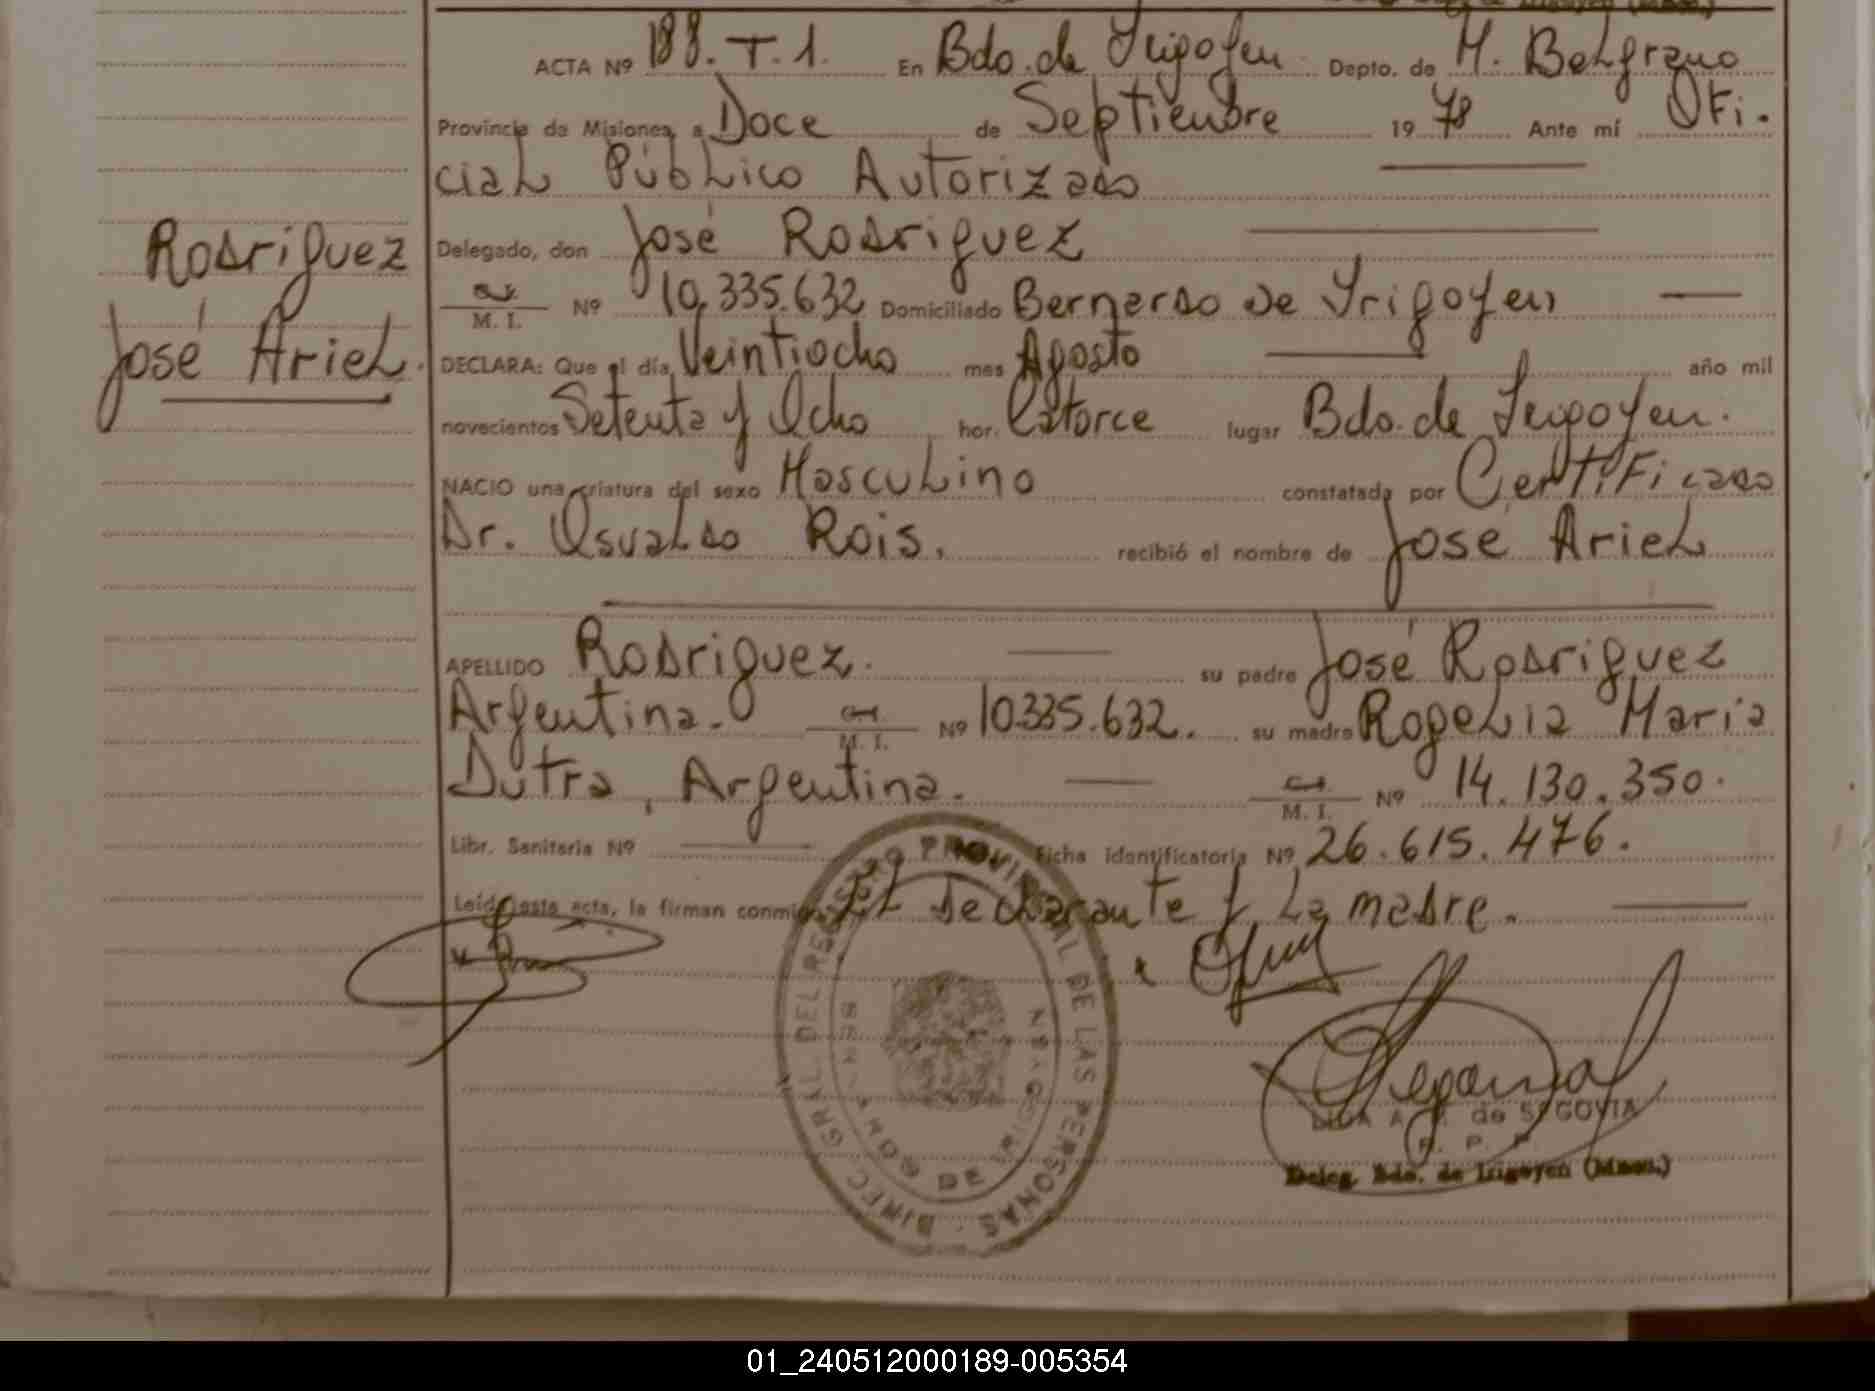 ACTA Nº 188. T. 1. En Bdo. de Irigoyen Depto. de M. Belgrano
Provincia de Misiones, a Doce de Septiembre 19 78 Ante mí Ofi.
cial Público Autorizado
Rodriguez
Delegado, don José Rodriguez
M. I. Nº 10.335.632 Domiciliado Bernardo de Yrigoyen
José Ariel.
DECLARA: Que el día Veintiocho mes Agosto año mil
novecientos Setenta y Ocho hor. Catorce lugar Bdo. de Irigoyen.
NACIO una criatura del sexo Masculino constatada por Certificado
Dr. Osvaldo Rois. recibió el nombre de José Ariel
APELLIDO Rodriguez. su padre José Rodriguez
Argentina. M. I. Nº 10.335.632. su madre Rogelia Maria
Dutra, Argentina. M. I. Nº 14.130.350.
Libr. Sanitaria Nº Ficha identificatoria Nº 26.615.476.
Leída esta acta, la firman conmigo El declarante y La madre.
GRAL DEL REGISTRO PROVINCIAL DE LAS PERSONAS
DE IRIGOYEN
de SEGOVIA
Deleg. Bdo. de Irigoyen (Mnes.)
01_240512000189-005354